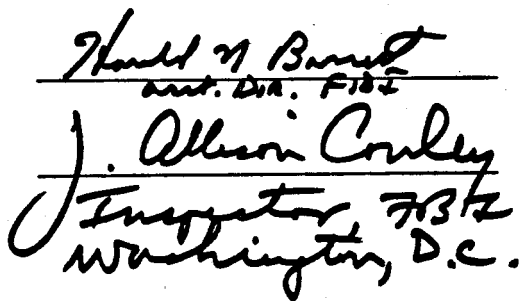 Harold N Bassett
asst. Dir. FBI
J. Allison Conley
Inspector, FBI
Washington, D.C.